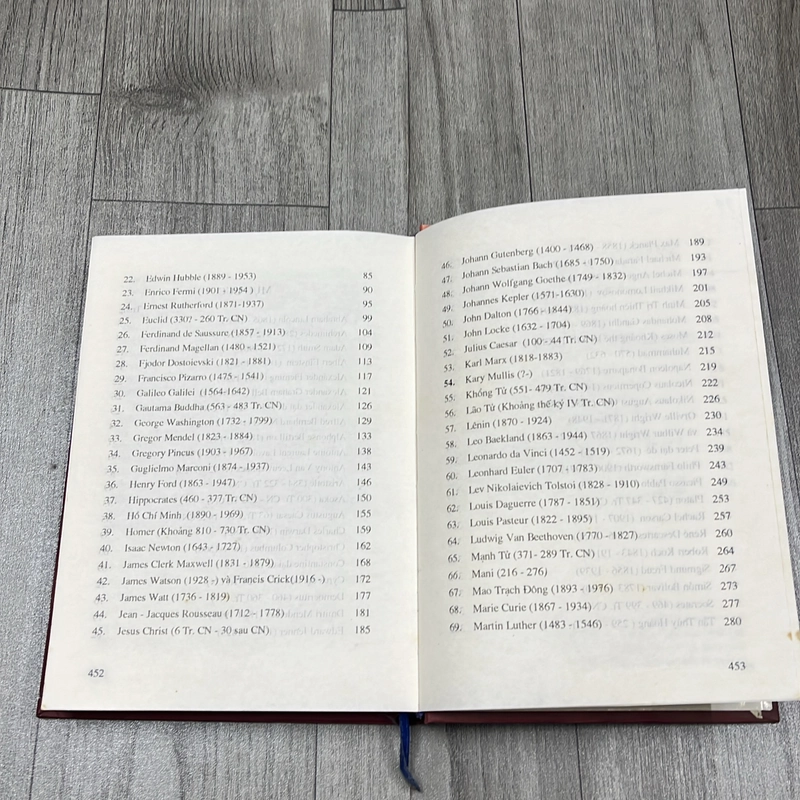 22. Edwin Hubble (1889 - 1953) 85
23. Enrico Fermi (1901 - 1954) 90
24. Ernest Rutherford (1871-1937) 95
25. Euclid (330? - 260 Tr. CN) 99
26. Ferdinand de Saussure (1857 - 1913) 104
27. Ferdinand Magellan (1480 - 1521) 109
28. Fjodor Dostoievski (1821 - 1881) 113
29. Francisco Pizarro (1475 - 1541) 117
30. Galileo Galilei (1564-1642) 121
31. Gautama Buddha (563 - 483 Tr. CN) 126
32. George Washington (1732 - 1799) 129
33. Gregor Mendel (1823 - 1884) 133
34. Gregory Pincus (1903 - 1967) 138
35. Guglielmo Marconi (1874 - 1937) 143
36. Henry Ford (1863 - 1947) 146
37. Hippocrates (460 - 377 Tr. CN) 150
38. Hồ Chí Minh (1890 - 1969) 155
39. Homer (Khoảng 810 - 730 Tr. CN) 159
40. Isaac Newton (1643 - 1727) 162
41. James Clerk Maxwell (1831 - 1879) 168
42. James Watson (1928 -) và Francis Crick(1916 -) 172
43. James Watt (1736 - 1819) 177
44. Jean - Jacques Rousseau (1712 - 1778) 181
45. Jesus Christ (6 Tr. CN - 30 sau CN) 185
452
46. Johann Gutenberg (1400 - 1468) 189
47. Johann Sebastian Bach (1685 - 1750) 193
48. Johann Wolfgang Goethe (1749 - 1832) 197
49. Johannes Kepler (1571-1630) 201
50. John Dalton (1766 - 1844) 205
51. John Locke (1632 - 1704) 208
52. Julius Caesar (100 - 44 Tr. CN) 212
53. Karl Marx (1818-1883) 215
54. Kary Mullis (?-) 219
55. Khổng Tử (551- 479 Tr. CN) 222
56. Lão Tử (Khoảng thế kỷ IV Tr. CN) 226
57. Lênin (1870 - 1924) 230
58. Leo Baekland (1863 - 1944) 234
59. Leonardo da Vinci (1452 - 1519) 239
60. Leonhard Euler (1707 - 1783) 243
61. Lev Nikolaievich Tolstoi (1828 - 1910) 249
62. Louis Daguerre (1787 - 1851) 253
63. Louis Pasteur (1822 - 1895) 257
64. Ludwig Van Beethoven (1770 - 1827) 260
65. Mạnh Tử (371- 289 Tr. CN) 264
66. Mani (216 - 276) 267
67. Mao Trạch Đông (1893 - 1976) 273
68. Marie Curie (1867 - 1934) 277
69. Martin Luther (1483 - 1546) 280
453